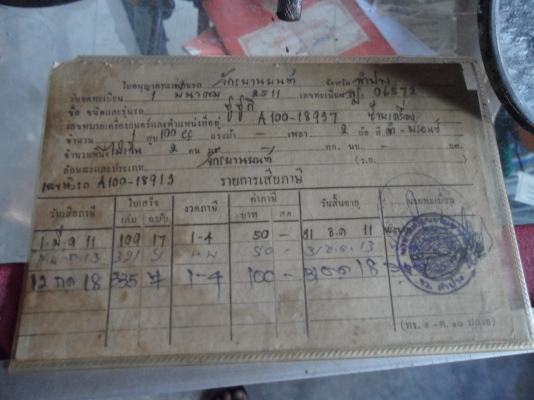 ใบอนุญาตทะเบียนรถ จักรยานยนต์ จังหวัด ลำปาง
วันจดทะเบียน 1 มีนาคม 2511 เลขทะเบียน 06572
ชื่อ ชนิดและรุ่นรถ ซูซูกิ
เลขหมายเครื่องยนต์และตำแหน่งที่อยู่ A100-18937 ข้างเครื่อง
จำนวน สูบ 100 CC แรงม้า - เพลา 2 ล้อ สี
จำนวนที่นั่งไม่เกิน 2 คน กก. นน. - กก.
ลักษณะและประเภท จักรยานยนต์
เลขตัวรถ A100-18913 รายการเสียภาษี
วันเสียภาษี ใบเสร็จ งวดภาษี ค่าภาษี วันสิ้นอายุ นายทะเบียน
เล่ม ฉบับ บาท ส.ต.
1 มี.ค 11 109 17 1-4 50 - 31 ธ.ค 11
50 - 31 ธ.ค. 13
12 กค 18 335 7 1-4 100 - 31 ธค 18